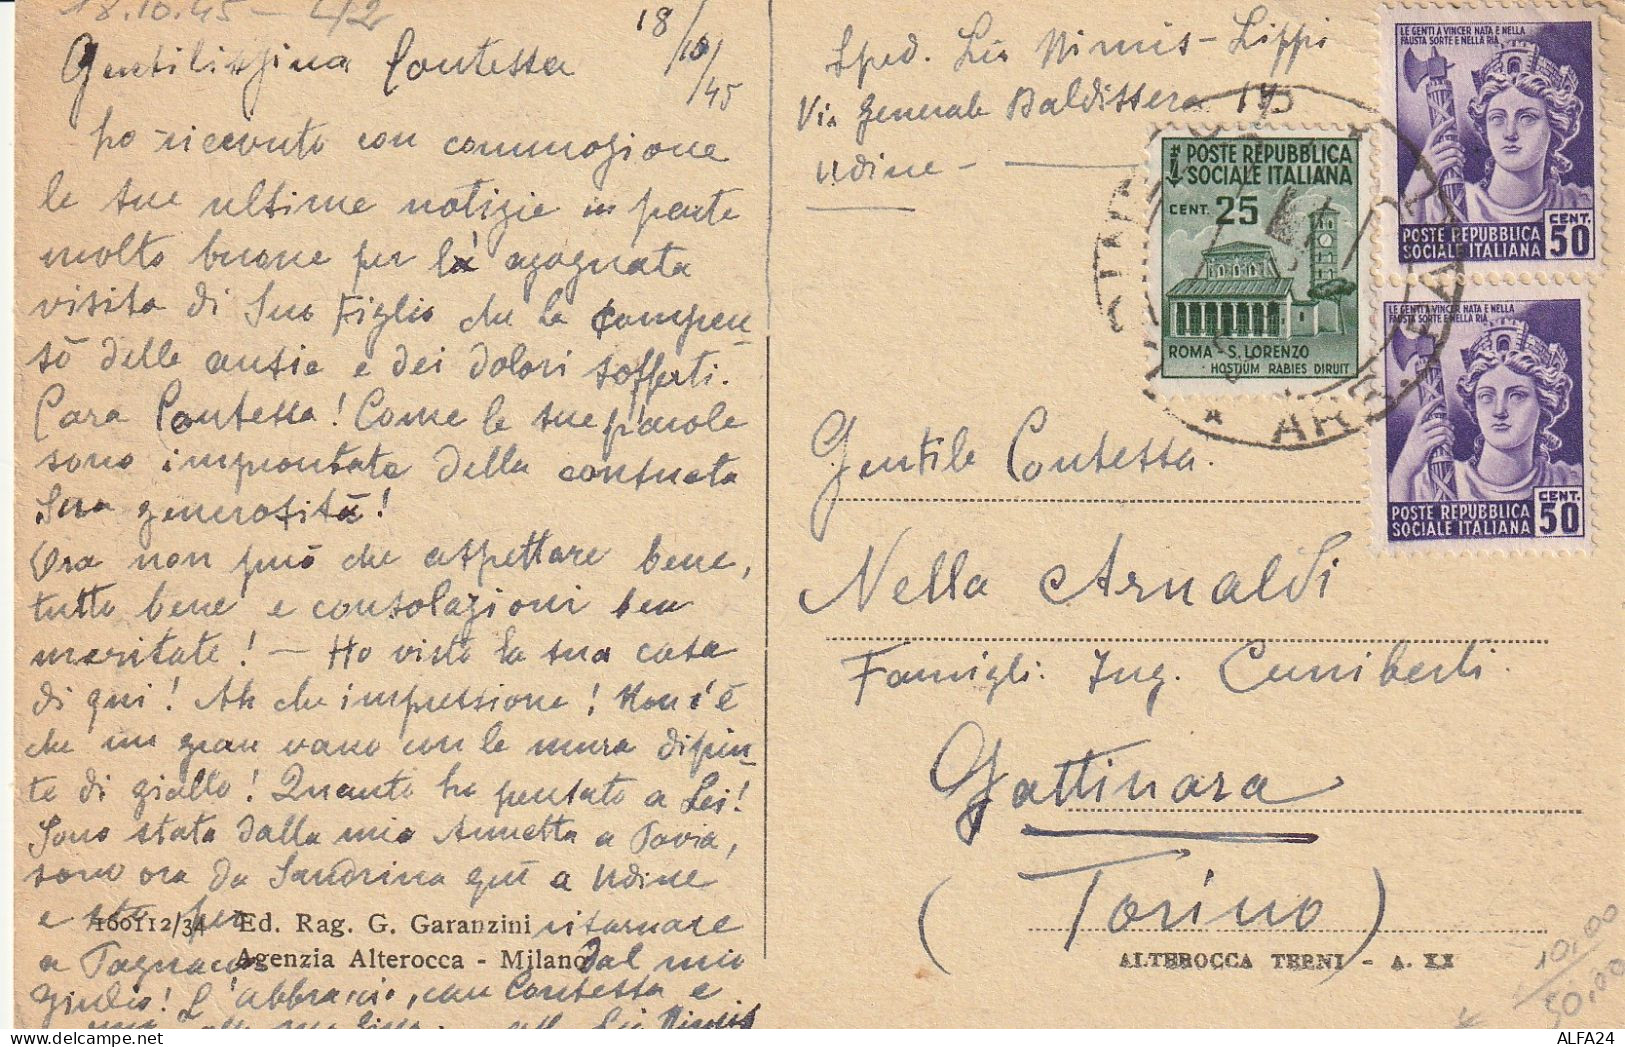 18.10.45 -
18/10/45
Gentilissima Contessa
ho ricevuto con commozione
le sue ultime notizie in parte
molto buone per la agognata
visita di Suo Figlio che la compen
sò delle ansie e dei dolori sofferti.
Cara Contessa! Come le sue parole
sono improntate della consueta
Sua generosità!
Ora non può che aspettare bene,
tutto bene e consolazioni ben
meritate! - Ho visto la sua casa
di qui! Ah che impressione! Non c'è
che un gran vano con le mura dipin-
te di giallo! Quanto ho pensato a Lei!
Sono stata dalla mia Annetta a Pavia,
sono ora da Sandrina qui a Udine
e sto per ritornare
a Tagnacco dal mio
Giulio! L'abbraccio, cara Contessa e
160112/34 Ed. Rag. G. Garanzini
Agenzia Alterocca - Milano
Sped. Lia Nimis - Lippi
Via Generale Baldissera 14
Udine -
POSTE REPUBBLICA
SOCIALE ITALIANA
CENT. 25
ROMA - S. LORENZO
HOSTIUM RABIES DIRUIT
LE GENTI A VINCER NATA E NELLA
FAUSTA SORTE E NELLA RIA
CENT. 50
POSTE REPUBBLICA
SOCIALE ITALIANA
LE GENTI A VINCER NATA E NELLA
FAUSTA SORTE E NELLA RIA
CENT. 50
POSTE REPUBBLICA
SOCIALE ITALIANA
Gentile Contessa.
Nella Arnaldi
Famigli. Ing. Cuniberti.
Gattinara
(Torino)
ALTEROCCA TERNI - A. XX
10,00
50,00
ALFA24